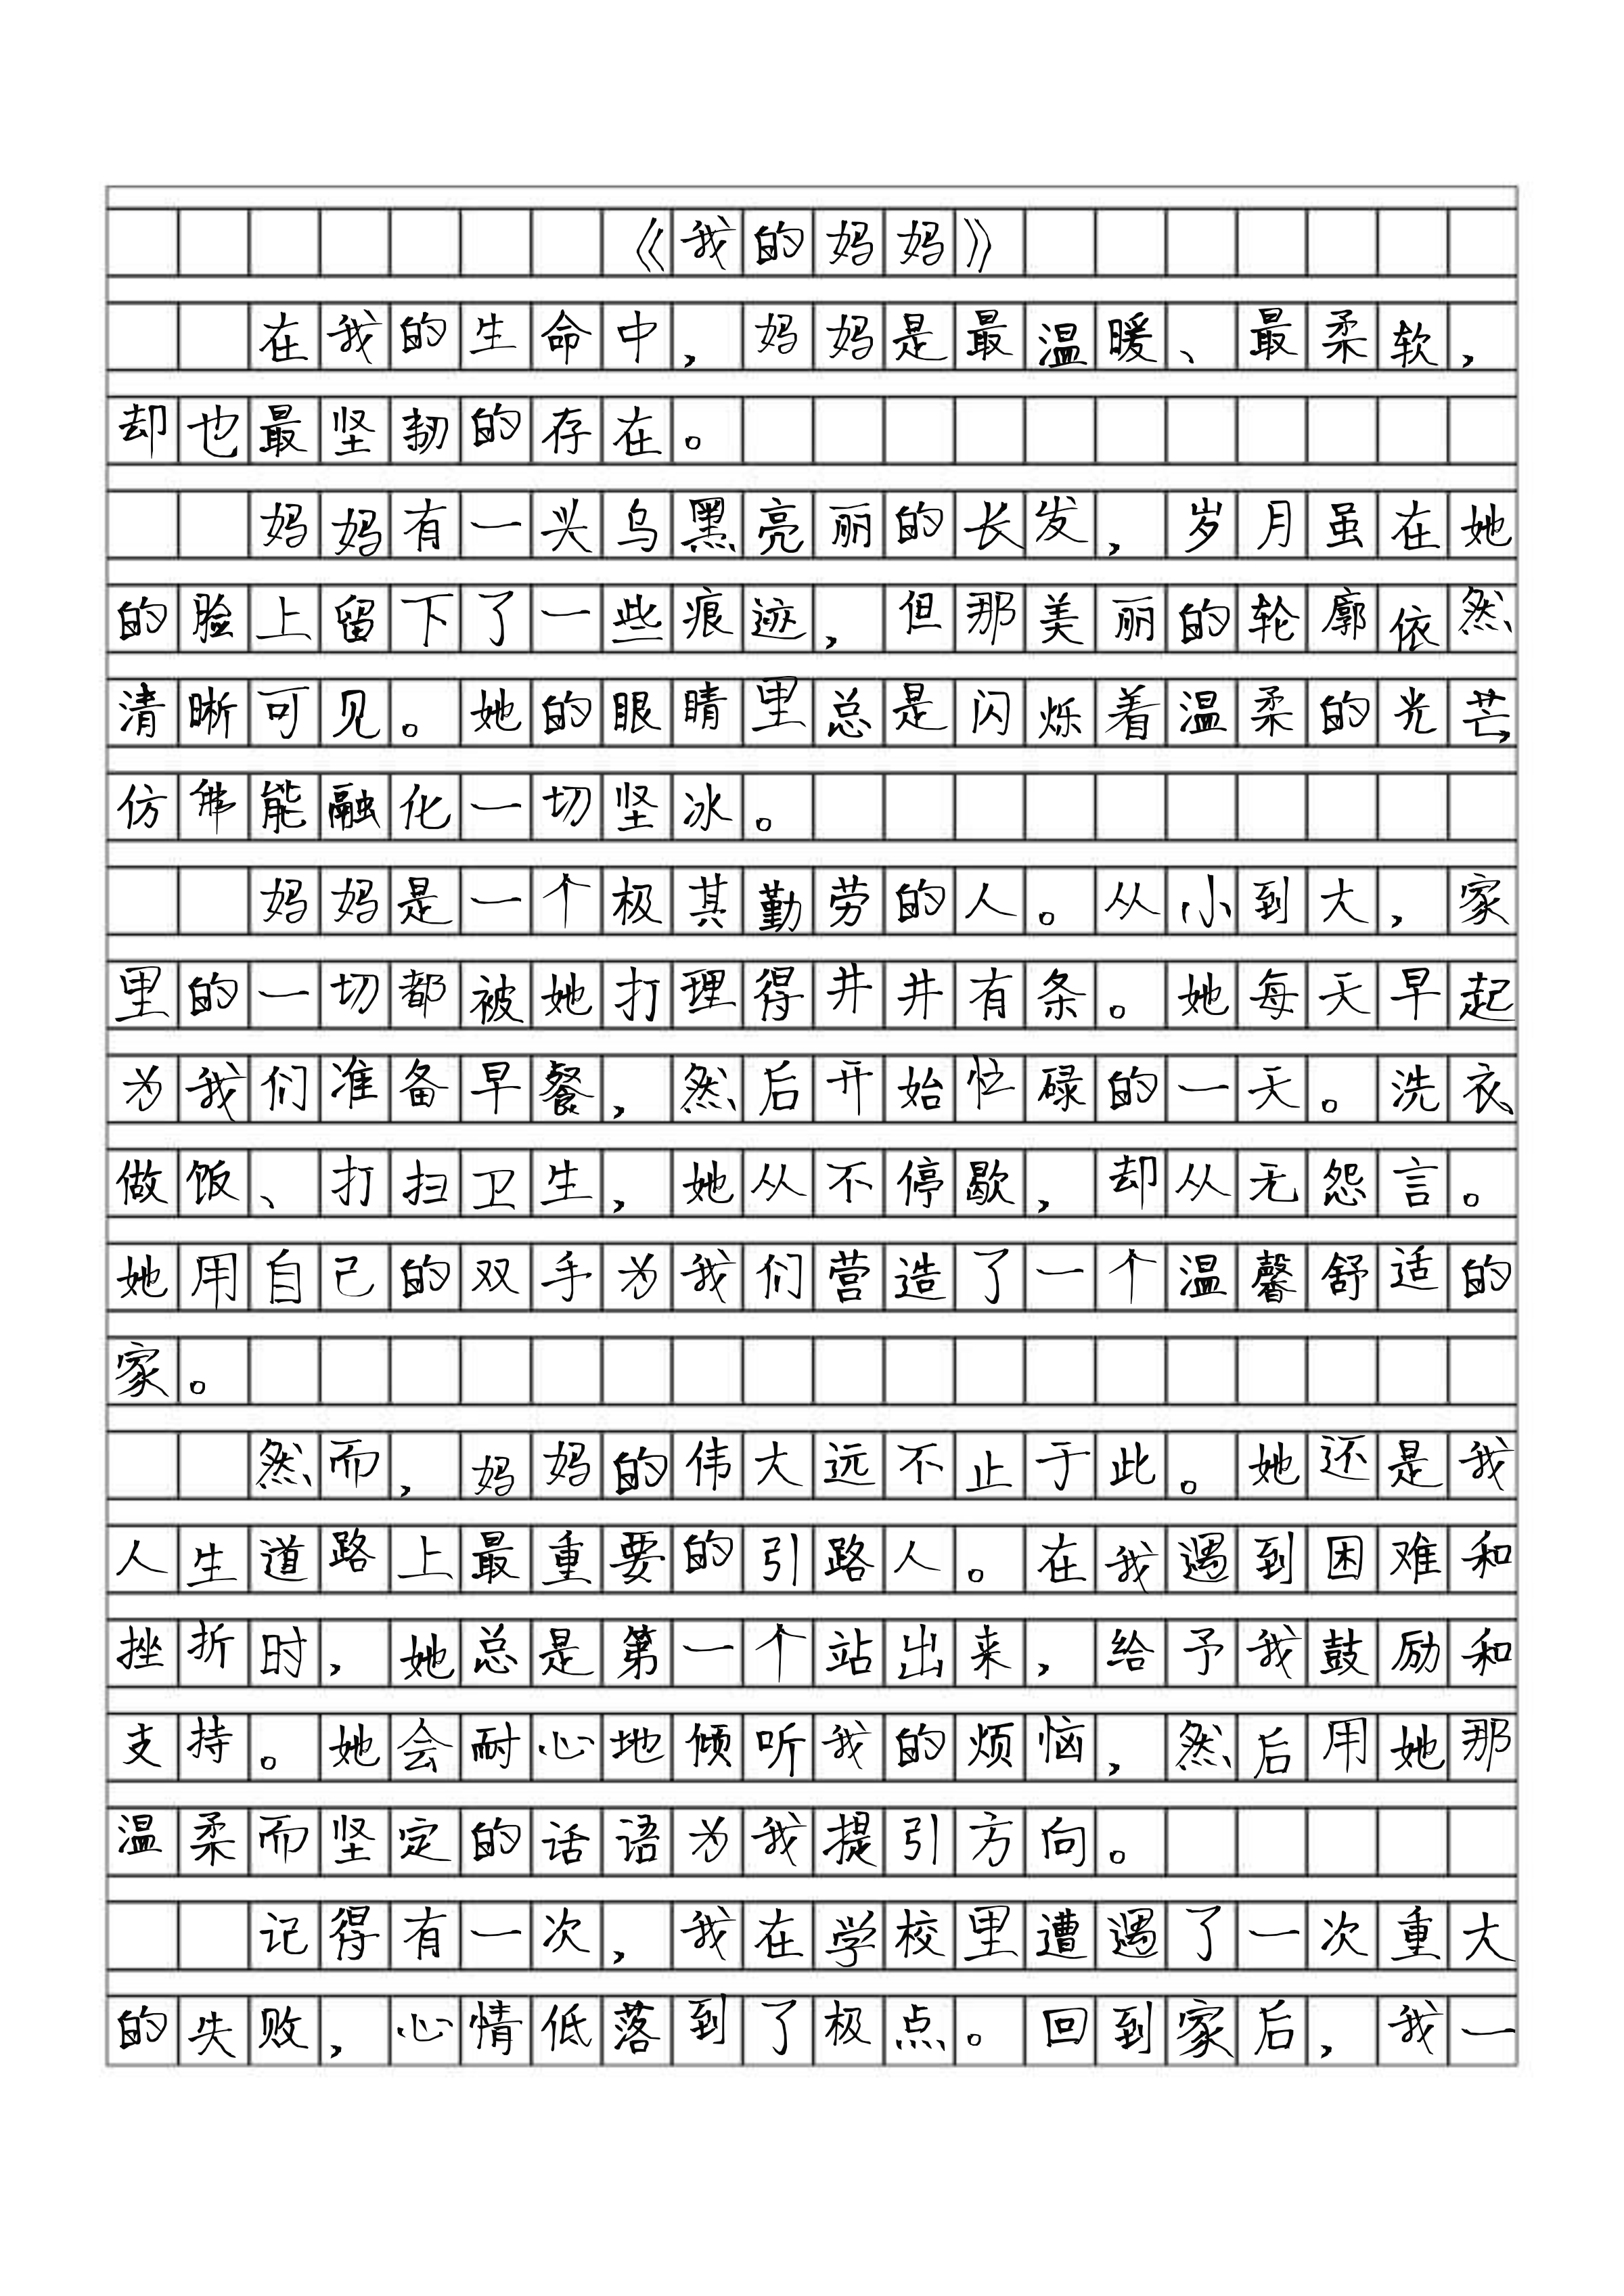 《我的妈妈》
在我的生命中，妈妈是最温暖、最柔软，
却也最坚韧的存在。
妈妈有一头乌黑亮丽的长发，岁月虽在她
的脸上留下了一些痕迹，但那美丽的轮廓依然
清晰可见。她的眼睛里总是闪烁着温柔的光芒，
仿佛能融化一切坚冰。
妈妈是一个极其勤劳的人。从小到大，家
里的一切都被她打理得井井有条。她每天早起
为我们准备早餐，然后开始忙碌的一天。洗衣、
做饭、打扫卫生，她从不停歇，却从无怨言。
她用自己的双手为我们营造了一个温馨舒适的
家。
然而，妈妈的伟大远不止于此。她还是我
人生道路上最重要的引路人。在我遇到困难和
挫折时，她总是第一个站出来，给予我鼓励和
支持。她会耐心地倾听我的烦恼，然后用她那
温柔而坚定的话语为我提引方向。
记得有一次，我在学校里遭遇了一次重大
的失败，心情低落到了极点。回到家后，我一